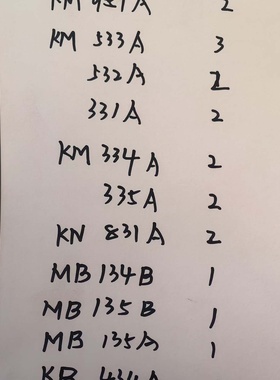 KM 533A 3
532A
331A 2
KM 334A 2
335A 2
KN 831A 2
MB 134B 1
MB 135B 1
MB 135A 1